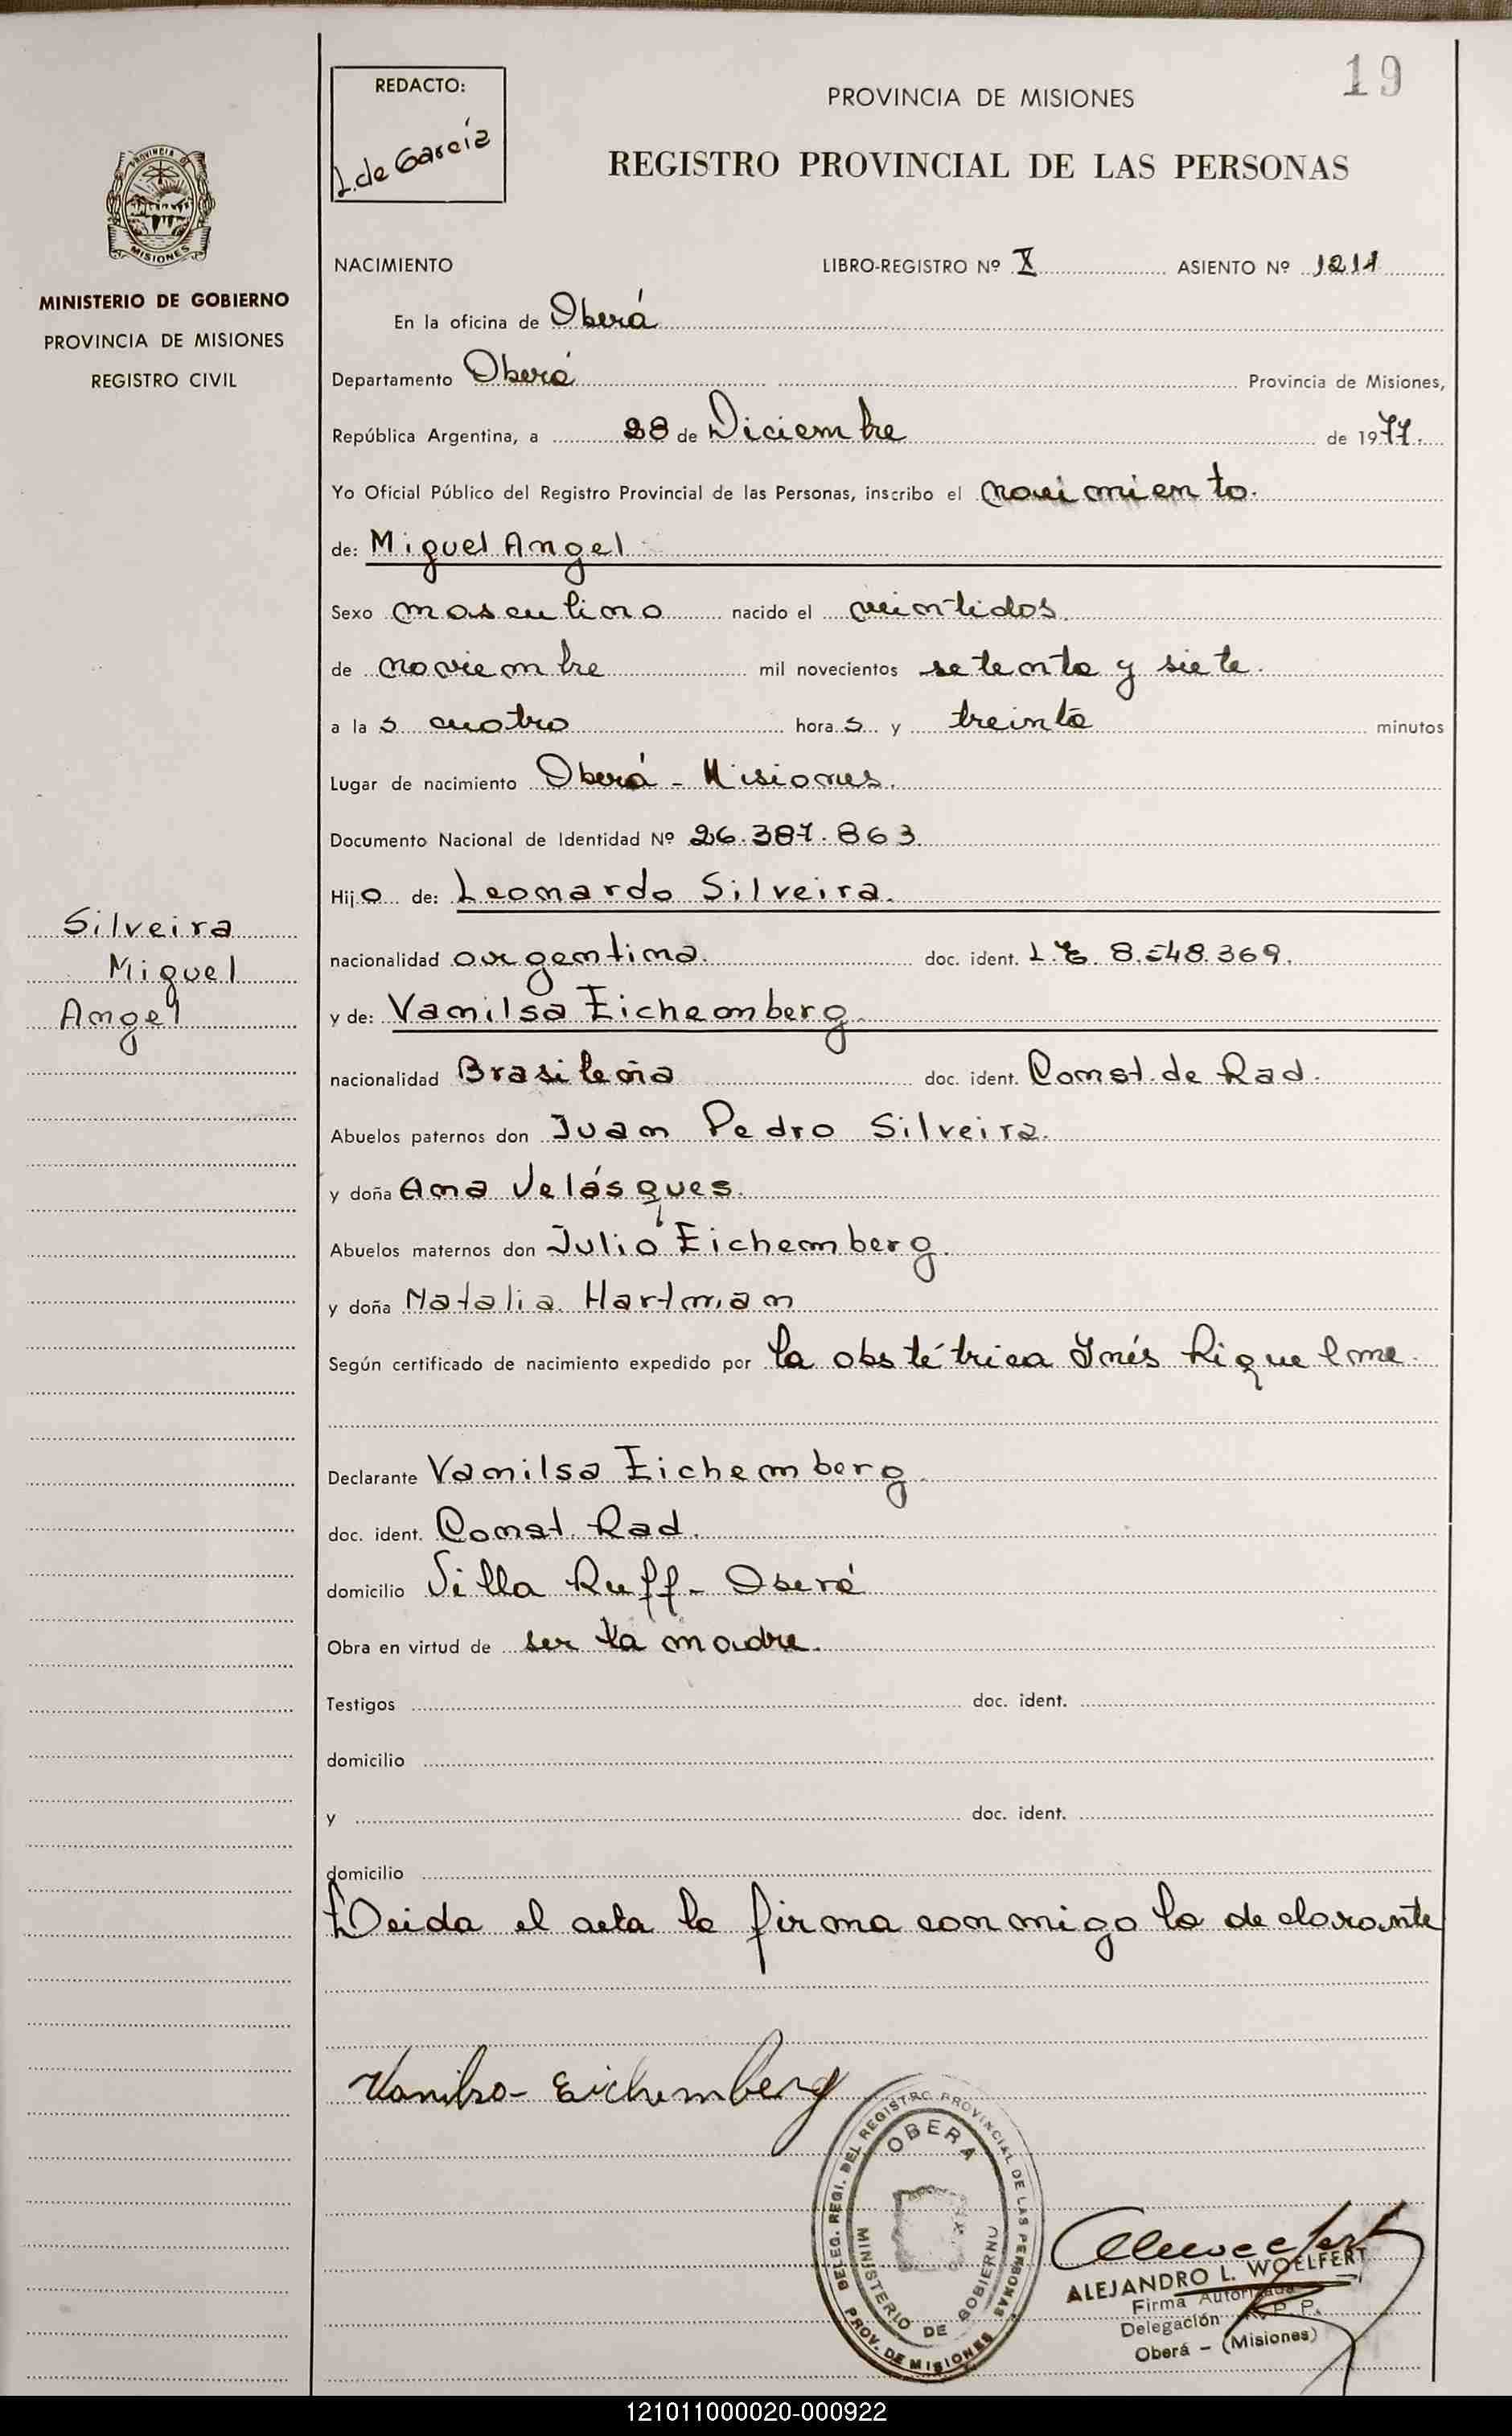 19
REDACTO:
L. de García
PROVINCIA DE MISIONES
REGISTRO PROVINCIAL DE LAS PERSONAS
PROVINCIA DE
MISIONES
MINISTERIO DE GOBIERNO
PROVINCIA DE MISIONES
REGISTRO CIVIL
NACIMIENTO LIBRO-REGISTRO Nº X ASIENTO Nº 1211
En la oficina de Oberá
Departamento Oberá Provincia de Misiones,
República Argentina, a 28 de Diciembre de 1977.
Yo Oficial Público del Registro Provincial de las Personas, inscribo el nacimiento.
de: Miguel Angel
Sexo masculino nacido el veintidos
de noviembre mil novecientos setenta y siete.
a las cuatro horas y treinta minutos
Lugar de nacimiento Oberá - Misiones.
Documento Nacional de Identidad Nº 26.387.863.
Hijo de: Leonardo Silveira.
Silveira
Miguel
Angel
nacionalidad argentina. doc. ident. L.E. 8.548.369.
y de: Vanilsa Eichemberg.
nacionalidad Brasileña doc. ident. Const. de Rad.
Abuelos paternos don Juan Pedro Silveira.
y doña Ana Velásques.
Abuelos maternos don Julio Eichemberg.
y doña Natalia Hartman
Según certificado de nacimiento expedido por la obstétrica Inés Riquelme.
Declarante Vanilsa Eichemberg.
doc. ident. Const. Rad.
domicilio Villa Ruff - Oberá
Obra en virtud de ser la madre.
Testigos doc. ident.
domicilio
y doc. ident.
domicilio
Leida el acta la firma conmigo la declarante
Vanilsa - Eichemberg
DELEG. REGI. DEL REGISTRO PROVINCIAL DE LAS PERSONAS
OBERA
MINISTERIO DE GOBIERNO
PROV. DE MISIONES
ALEJANDRO L. WOELFERT
Firma Autorizada
Delegación R. P. P.
Oberá - (Misiones)
121011000020-000922